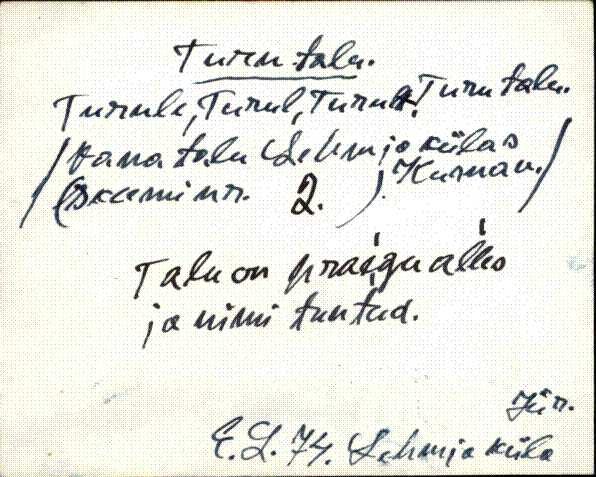 Turu talu.
Turule, Turul, Turult, Turu talu.
/ Vana talu Lehmja külas
(Skeemi nr. 2. ). Kurnav. /
Talu on praegu alles
ja nimi tuntud.
Jür.
E. L. 74. Lehmja küla